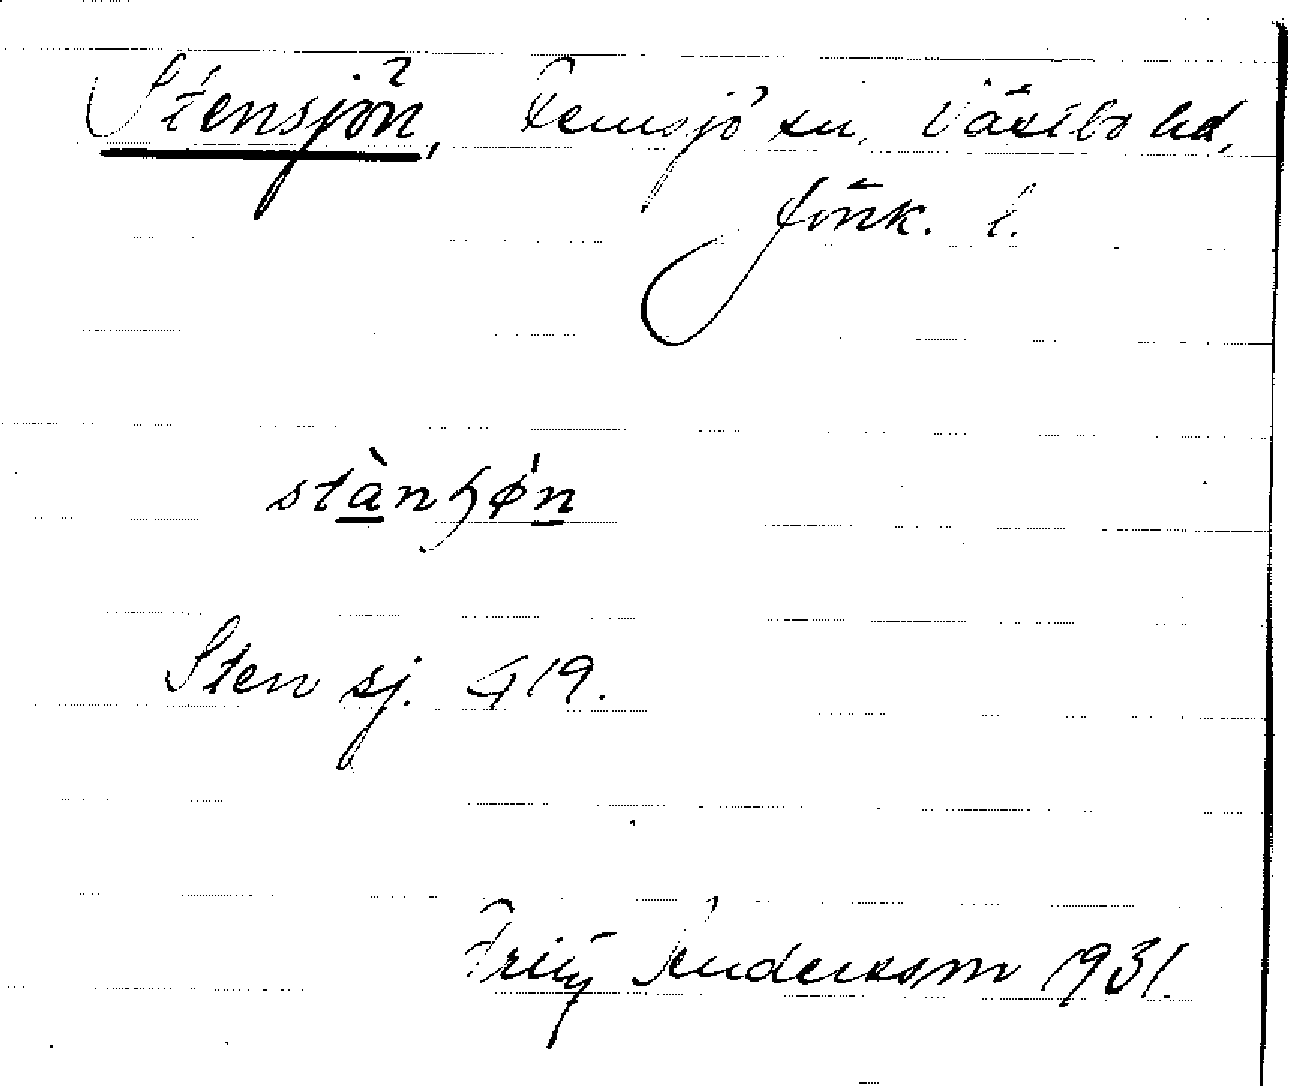 Stensjön, Femsjö sn, Västbo hd,
Jönk. l.
stànʂǿn
Sten sj. G 19.
Fritz Andersson 1931.